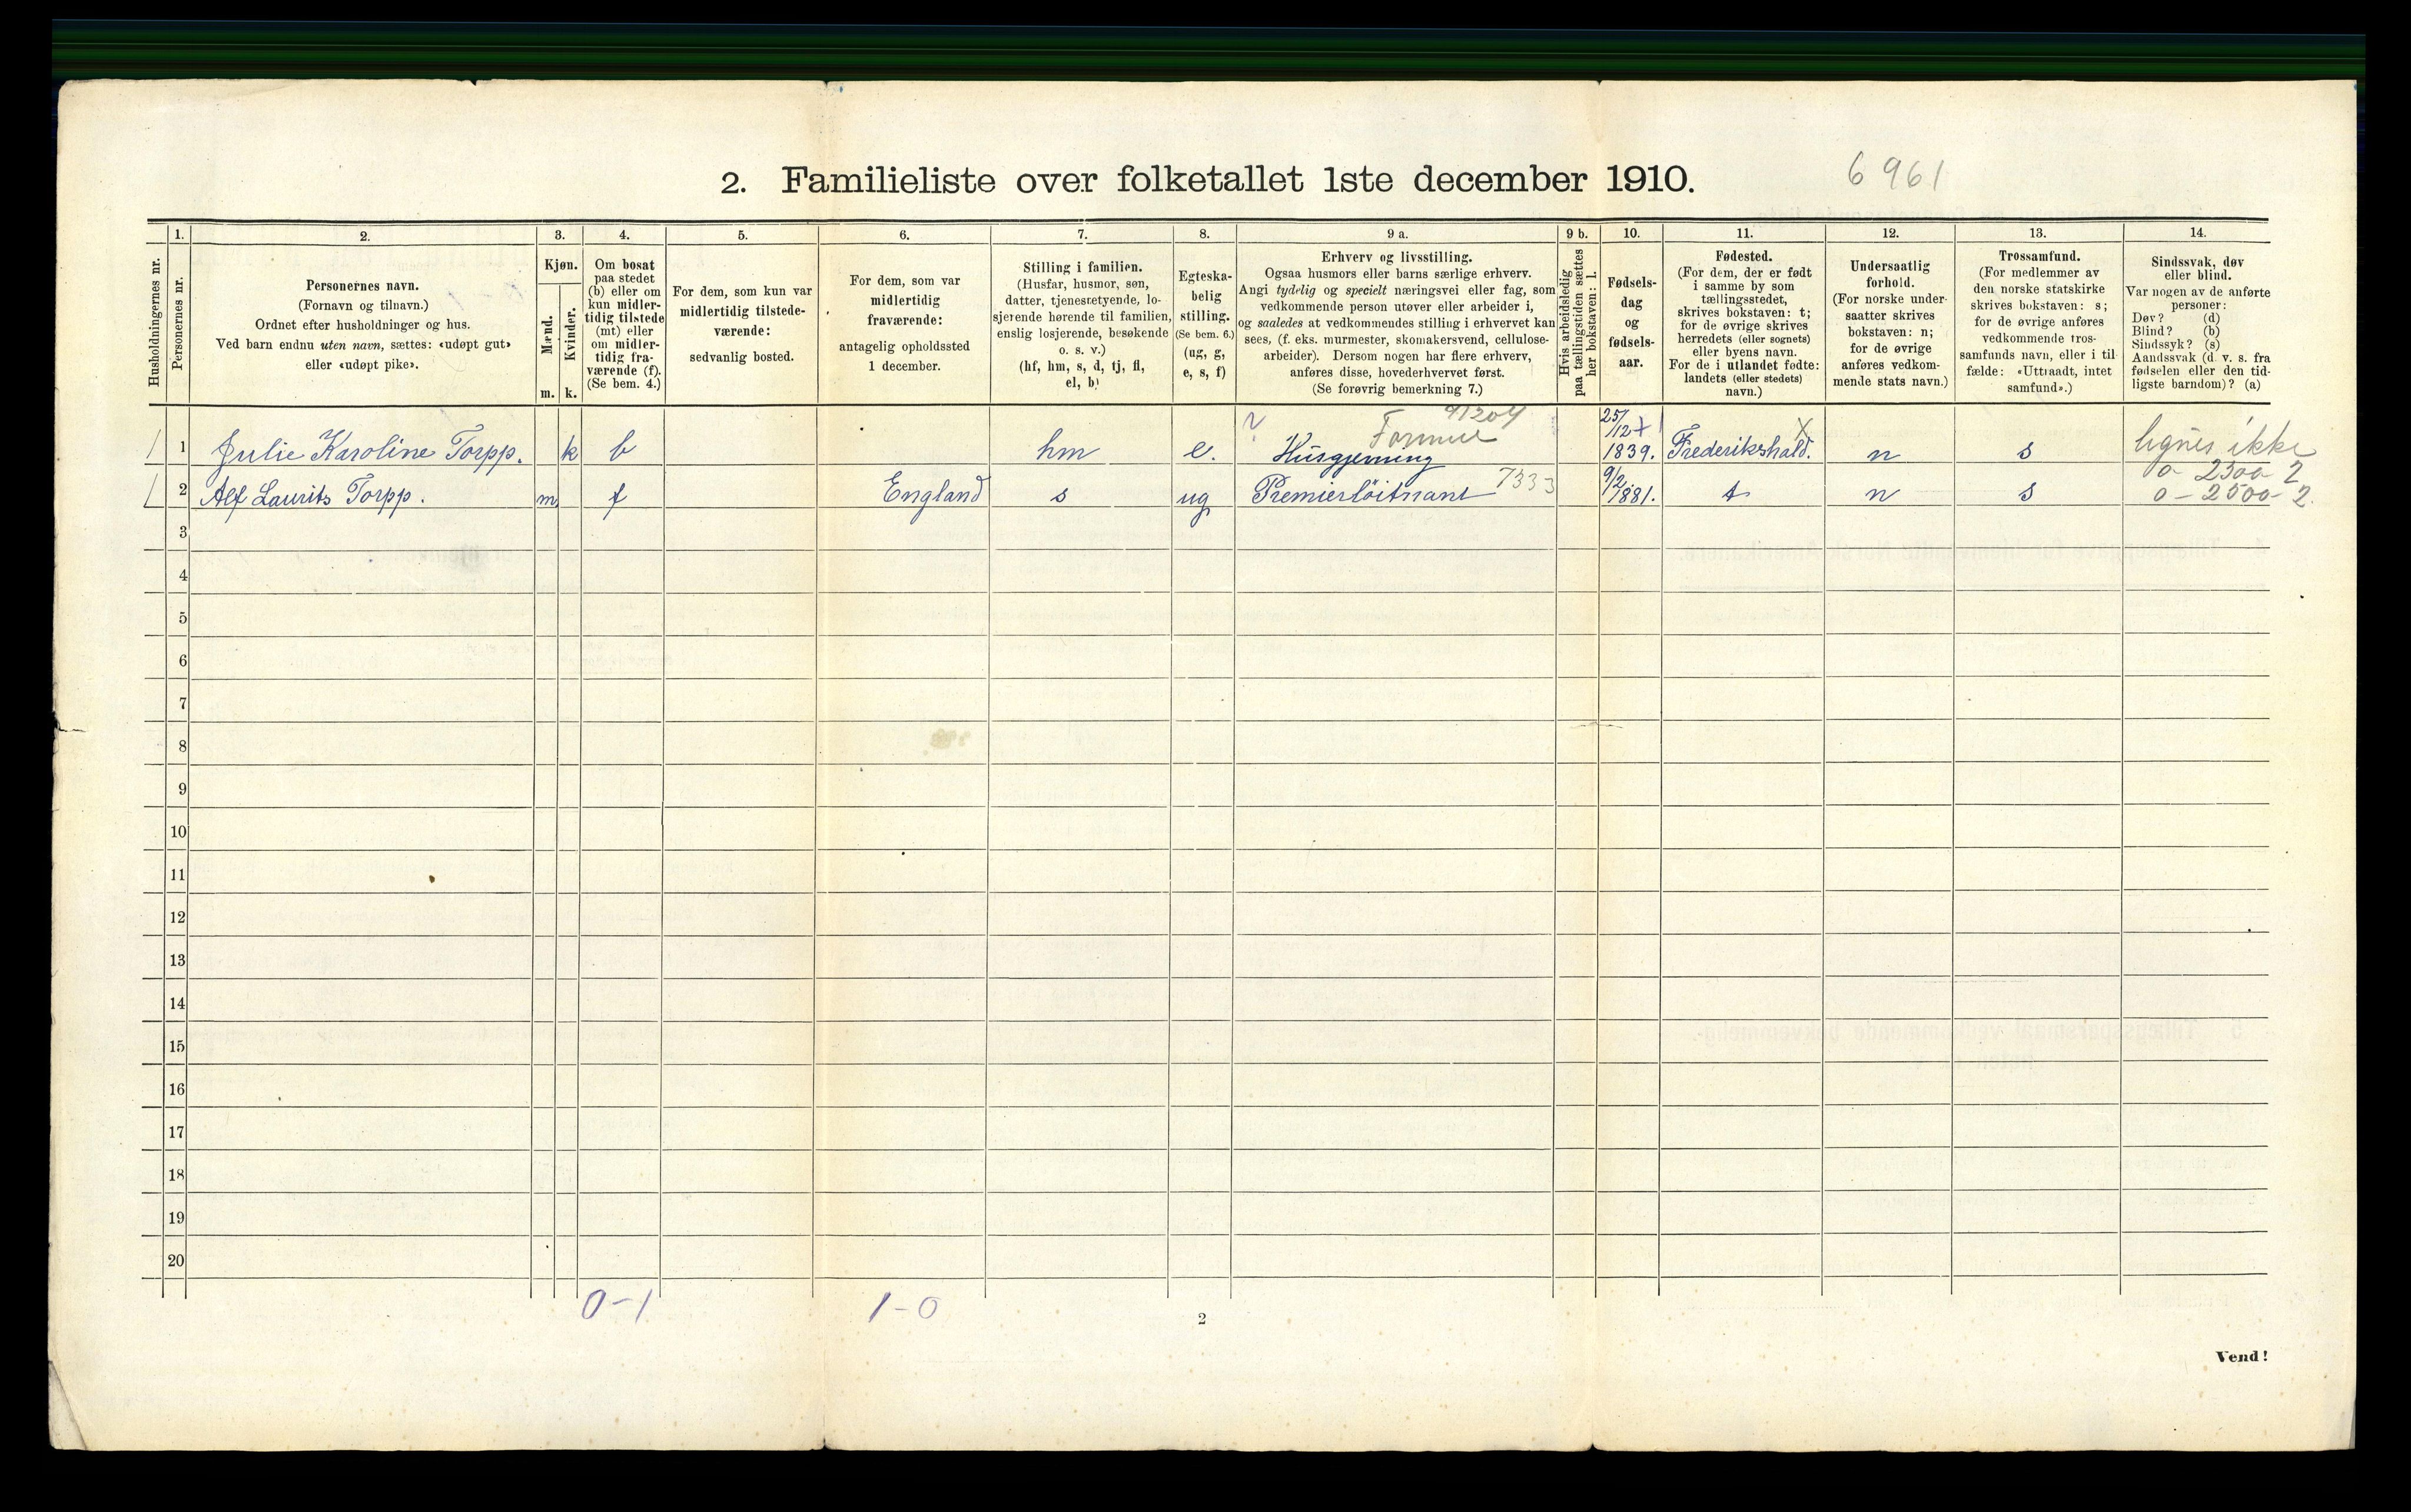 2. Familieliste over folketallet 1ste december 1910.
6961
Husholdningernes nr.
1.
Personernes nr.
2.
Personernes navn.
(Fornavn og tilnavn.)
Ordnet efter husholdninger og hus.
Ved barn endnu uten navn, sættes: «udøpt gut»
eller «udøpt pike».
3.
Kjøn.
Mænd.
m.
Kvinder.
k.
4.
Om bosat
paa stedet
(b) eller om
kun midler-
tidig tilstede
(mt) eller
om midler-
tidig fra-
værende (f).
(Se bem. 4.)
5.
For dem, som kun var
midlertidig tilstede-
værende:
sedvanlig bosted.
6.
For dem, som var
midlertidig
fraværende:
antagelig opholdssted
1 december.
7.
Stilling i familien.
(Husfar, husmor, søn,
datter, tjenestetyende, lo-
sjerende hørende til familien,
enslig losjerende, besøkende
o. s. v.)
(hf, hm, s, d, tj, fl,
el, b)
8.
Egteska-
belig
stilling.
(Se bem. 6.)
(ug, g,
e, s, f)
9 a.
Erhverv og livsstilling.
Ogsaa husmors eller barns særlige erhverv.
Angi tydelig og specielt næringsvei eller fag, som
vedkommende person utøver eller arbeider i,
og saaledes at vedkommendes stilling i erhvervet kan
sees, (f. eks. murmester, skomakersvend, cellulose-
arbeider). Dersom nogen har flere erhverv,
anføres disse, hovederhvervet først.
(Se forøvrig bemerkning 7.)
9 b.
Hvis arbeidsledig
paa tællingstiden sættes
her bokstaven: l.
10.
Fødsels-
dag
og
fødsels-
aar.
11.
Fødested.
(For dem, der er født
i samme by som
tællingsstedet,
skrives bokstaven: t;
for de øvrige skrives
herredets (eller sognets)
eller byens navn.
For de i utlandet fødte:
landets (eller stedets)
navn.)
12.
Undersaatlig
forhold.
(For norske under-
saatter skrives
bokstaven: n;
for de øvrige
anføres vedkom-
mende stats navn.)
13.
Trossamfund.
(For medlemmer av
den norske statskirke
skrives bokstaven: s;
for de øvrige anføres
vedkommende tros-
samfunds navn, eller i til-
fælde: «Uttraadt, intet
samfund».)
14.
Sindssvak, døv
eller blind.
Var nogen av de anførte
personer:
Døv? (d)
Blind? (b)
Sindssyk? (s)
Aandssvak (d. v. s. fra
fødselen eller den tid-
ligste barndom)? (a)
1 1 Julie Karoline Torpp. k b hm e. Formue Husgjerning 25/12 1839. Frederikshald. n s lignes ikke
0 - 2300 - 2
1 2 Alf Laurits Torpp. m f England s ug Premierløitnant 7333 9/2 1881. t n s 0 - 2500 - 2.
3
4
5
6
7
8
9
10
11
12
13
14
15
16
17
18
19
20
0-1 1-0
2
Vend!